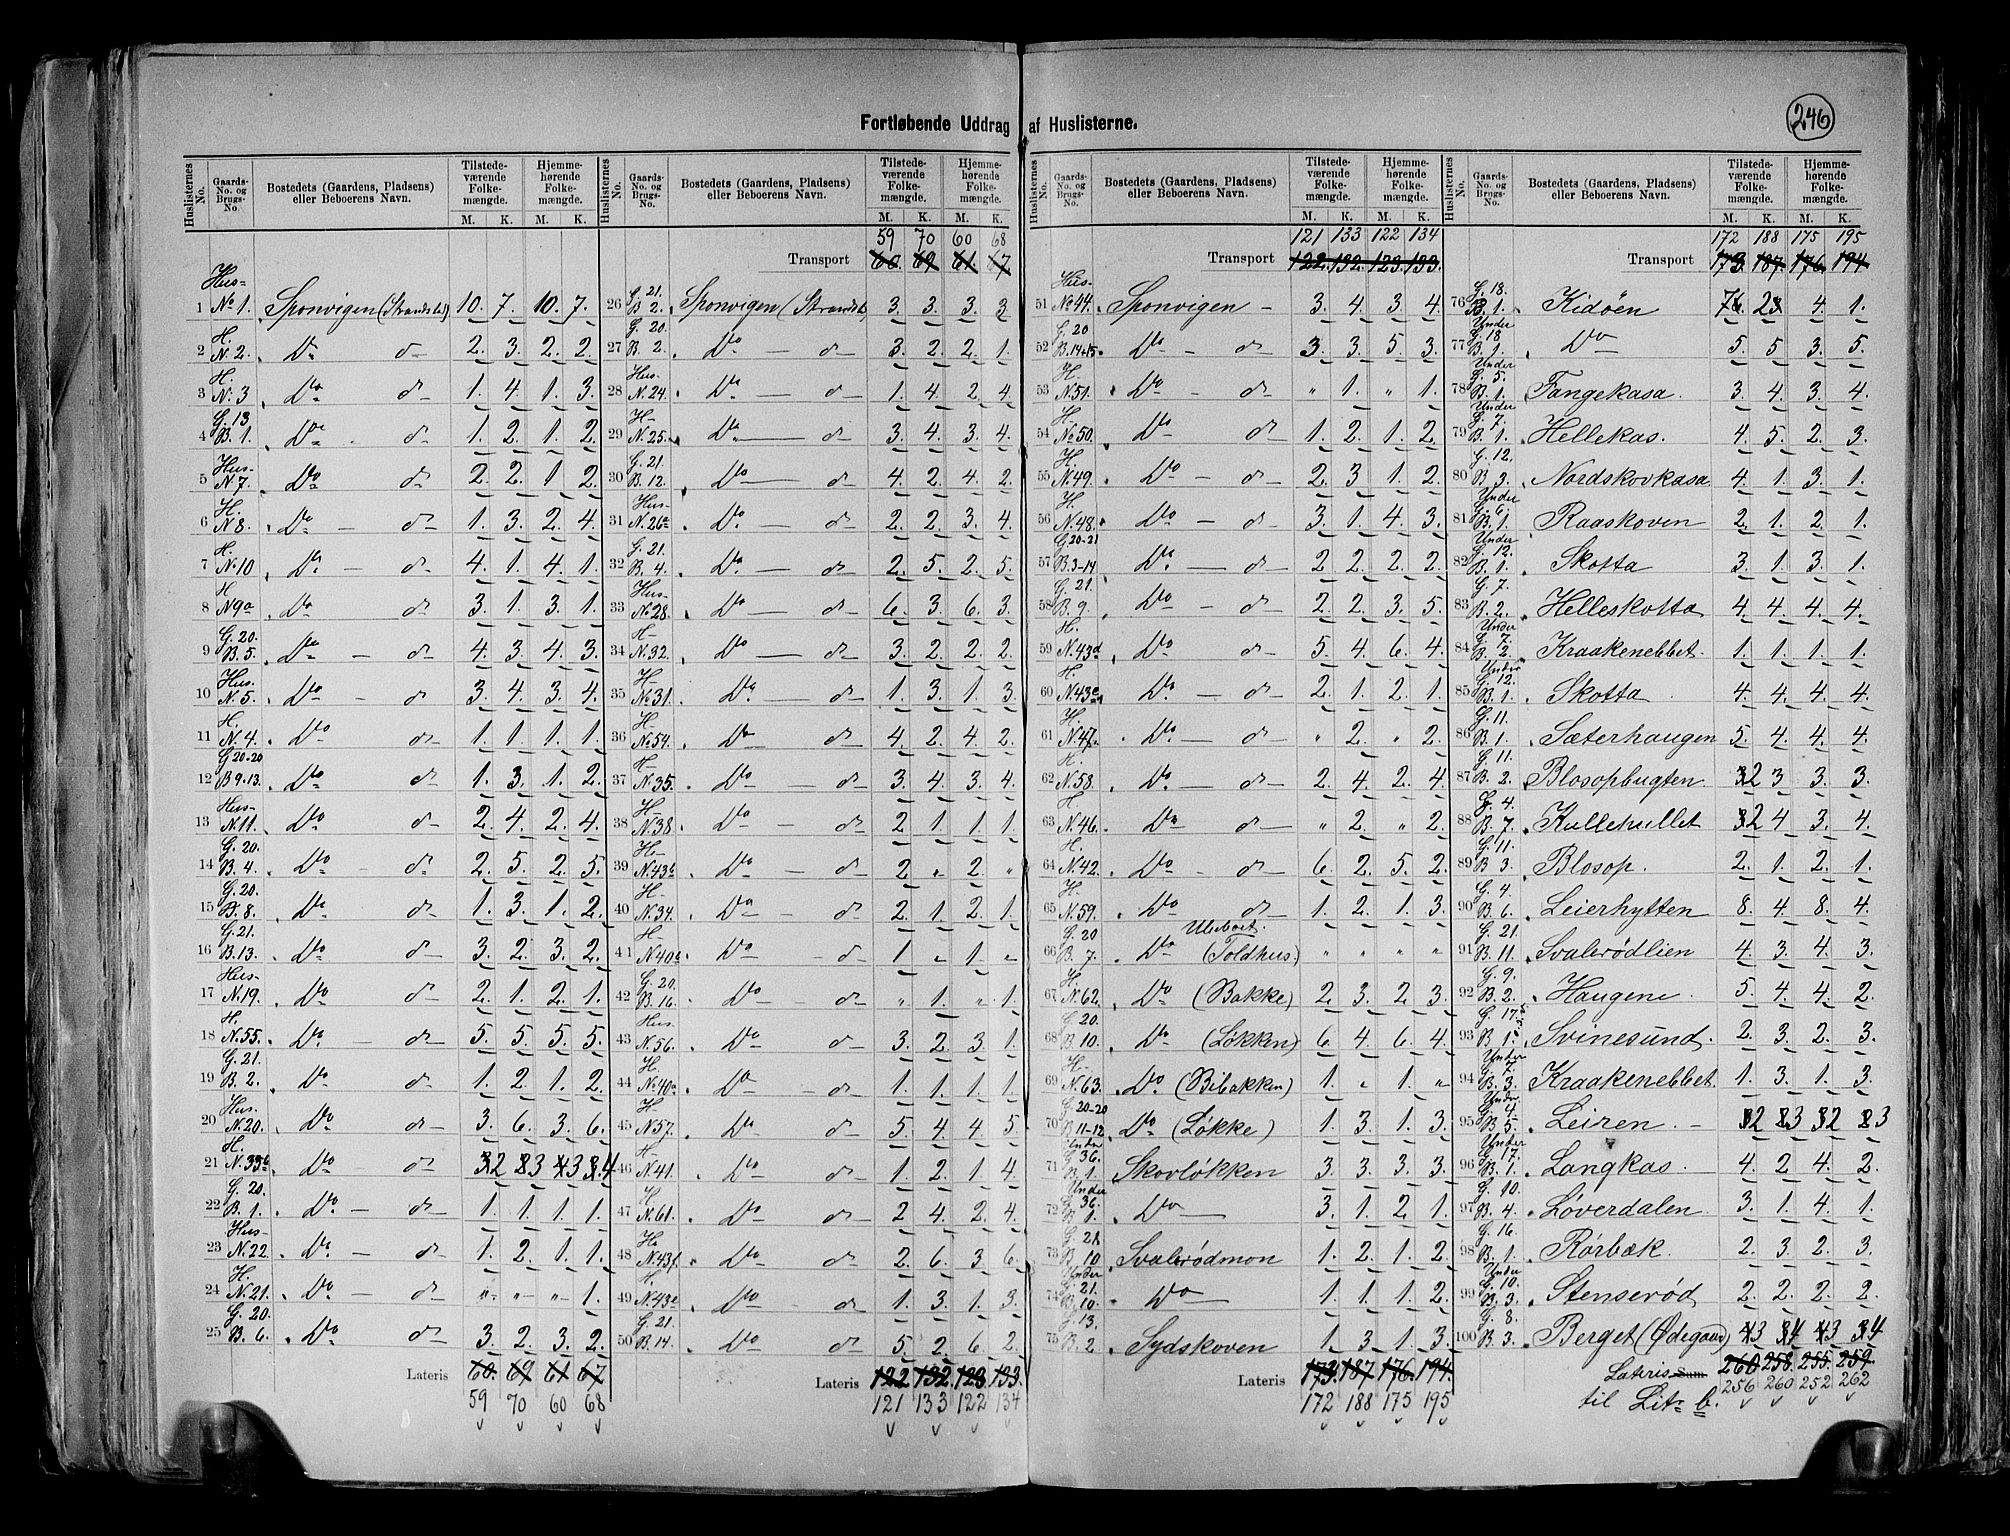 246
Fortløbende Uddrag af Huslisterne.
Huslisternes No. Gaards-No. og Brugs-No. Bostedets (Gaardens, Pladsens) eller Beboerens Navn. Tilstedeværende Folkemængde. M. K. Hjemmehørende Folkemængde. M. K.
1 Hus-No 1. Sponvigen (Strandsted) 10. 7. 10. 7.
2 H. N. 2. Do 2. 3. 2. 2.
3 H. No 3 Do 1. 4. 1. 3.
4 G. 13. B. 1. Do 1. 2. 1. 2.
5 Hus-N. 7. Do 2. 2. 1 2.
6 H. N 8. Do 1. 3. 2. 4.
7 H. No. 10 Do 4. 1. 4. 1.
8 H N9a Do 3. 1. 3. 1.
9 G. 20. B. 5. Do 4. 3. 4. 3.
10 Hus. N. 5. Do 3. 4. 3. 4.
11 H. N. 4. Do 1. 1. 1. 1.
12 G 20-20 B 9-13. Do 1. 3. 1. 2.
13 Hus-N. 11. Do 2. 4. 2. 4.
14 G. 20. B. 4. Do 2. 5. 2. 5.
15 G. 20. B. 8. Do 1. 3. 1. 2.
16 G. 21. B. 13. Do 3. 2. 3. 2.
17 Hus-N. 19. Do 2. 1. 2. 1.
18 H. N. 55. Do 5. 5. 5. 5.
19 G. 21. B. 2. Do 1. 2. 1. 2.
20 Hus. N. 20. Do 3. 6. 3. 6.
21 H. N. 33b Do 2 3 3 4
22 G. 20. B. 1. Do 1. 1. 1. 1.
23 Hus-N. 22. Do 1. 2. 1. 1.
24 H. N. 21. Do " " " 1.
25 G. 20. B. 6. Do 3. 2. 3. 2.
Lateris 60. 69 61 67
59 70 60 68
59 70 60 68
Transport 60. 69 61. 67
26 G. 21. B 2. Sponvigen (Strandsted 3. 3. 3. 3
27 G. 20. B. 2. Do 3. 2. 2. 1.
28 Hus. N. 24. Do 1. 4. 2. 4.
29 H- N. 25. Do 3. 4. 3. 4.
30 G. 21. B. 12. Do 4. 2. 4. 2.
31 Hus-N. 26a Do 2. 2. 3. 4.
32 G. 21. B. 4. Do 2. 5. 2. 5.
33 Hus-No 28. Do 6. 3. 6. 3.
34 H- N. 32. Do 3. 2. 2. 2.
35 H- No 31. Do 1. 3. 1. 3.
36 H- No. 54. Do 4. 2. 4. 2.
37 H- N. 35. Do 3. 4. 3. 4.
38 H- N. 38. Do 2 1. 1. 1.
39 H- N. 43b Do 2 " 2. "
40 H- N. 34. Do 2. 1. 2. 1.
41 H- N 40b Do 1 " 1. "
42 G. 20. B. 16. Do " 1. " 1.
43 Hus. N. 56. Do 3. 2. 3. 1.
44 H. No 40a Do 1. 1. 1. 1.
45 H- N 57. Do 5. 4. 4. 5
46 H- N. 41. Do 1. 2. 1. 4
47 H. N. 61. Do 2 4. 2. 4.
48 H. N. 43f. Do 2 6. 3 6.
49 H. N. 43e Do 1. 3. 1. 3.
50 G. 21. B. 14. Do 5. 2. 6. 2.
Lateris 122 132. 123. 133.
121 133 122 134
121 133 122 134
Transport 122. 132. 123. 133.
51 Hus-No 44. Sponvigen 3. 4. 3. 4.
52 G. 20 B. 14+15. Do 3. 3. 5. 3.
53 H. N. 51. Do " 1. " 1.
54 H. No 50. Do 1. 2. 1. 2.
55 H. N. 49. Do 2. 3 1. 2.
56 H. N. 48. Do 3. 1. 4. 3.
57 G. 20-21 B. 3-14 Do 2 2. 2. 2.
58 G. 21. B. 9. Do 2. 2. 3. 5.
59 H. N. 43d Do 5. 4. 6. 4.
60 H. N. 43c Do 2. 1. 2. 1.
61 H. N. 47. Do " 2. " 2.
62 H. N. 58. Do 2. 4. 2. 4.
63 H N. 46. Do " 2. " 2.
64 H. N. 42. Do 6. 2. 5. 2.
65 H. N. 59. Do 1. 2. 1. 3.
66 G. 20 B. 7. Do (Toldhus) Ubeboet. " " " "
67 H. N. 62. Do (Bakke) 2. 3. 2. 3.
68 G. 20. B. 10. Do (Løkken) 6. 4. 6. 4.
69 H- N. 63. Do (Bibakken) 1. " 1. "
70 G. 20-20 B 11-12 Do (Løkke) 1. 3. 1. 3.
71 Under G. 36. B. 1. Skovløkken 3. 3. 3. 3.
72 Under G. 36. B 1. Do 3. 1. 2. 1.
73 G. 21. B 10 Svalerødmon 1. 2. 1. 2.
74 Under G. 21. B. 10. Do 1. 1. 1. 2.
75 G. 13. B. 2 Sydskoven 1 3. 1. 3.
Lateris 173. 187 176. 194.
172 188 175 195
172 188 175 195
Transport 173. 187 176. 194
76 G. 18. B. 1. Kidöen 4 1.
77 Under G. 18 B. 1. Do 5. 5 3. 5.
78 Under G. 5. B. 1. Fangekasa. 3. 4. 3. 4.
79 Under G. 7. B. 1. Hellekas. 4. 5. 2. 3.
80 G. 12. B. 3. Nordskovkasa 4. 1. 3. 1.
81 Under G. 6. B. 1. Raaskoven 2. 1. 2. 1.
82 Under G. 12. B. 1. Skotta 3. 1. 3. 1.
83 G. 7. B. 2. Helleskotta 4. 4. 4. 4.
84 Under G. 7. B. 2. Kraakenebbet. 1. 1. 1. 1.
85 Under G. 12. B. 1. Skotta 4. 4. 4. 4.
86 G. 11. B. 1. Sæterhaugen 5. 4. 4. 4.
87 G. 11. B. 2. Blosopbugten 2 3 3. 3.
88 G. 4. B. 7. Kullehullet 2 4 3. 4.
89 G. 11. B 3. Blosop. 2. 1. 2. 1.
90 G. 4. B. 6. Leierhytten 8. 4. 8. 4.
91 G. 21. B. 11. Svalerødlien 4. 3. 4. 3.
92 G. 9. B. 2. Haugene 5. 4. 4. 2.
93 G. 17. B 1. Svinesund. 2. 3. 2. 3.
94 Under G. 7. B. 3. Kraakenebbet. 1. 3. 1. 3.
95 Under G. 4. B. 5. Leiren. 2 3 2 3
96 Under G. 17. B. 1. Langkas. 4. 2 4. 2.
97 G. 10. B. 4. Löverdalen 3. 1. 4. 1.
98 G. 16. B. 1. Rörbæk. 2. 3. 2. 3.
99 Under G. 10. B. 3. Stenserød 2. 2. 2. 2.
100 G. 8. B. 3. Berget (Ødegaard) 3 4 3 4
Lateris Sum 260. 258. 255. 259.
256 260 252 262
til Litr b.